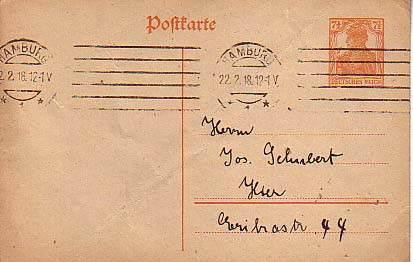 Postkarte
HAMBURG
22.2.18.12-1 V
1
HAMBURG
22.2.18.12-1 V
1
7½ 7½
DEUTSCHES REICH
Herrn
Jos. Schubert
Hier
44